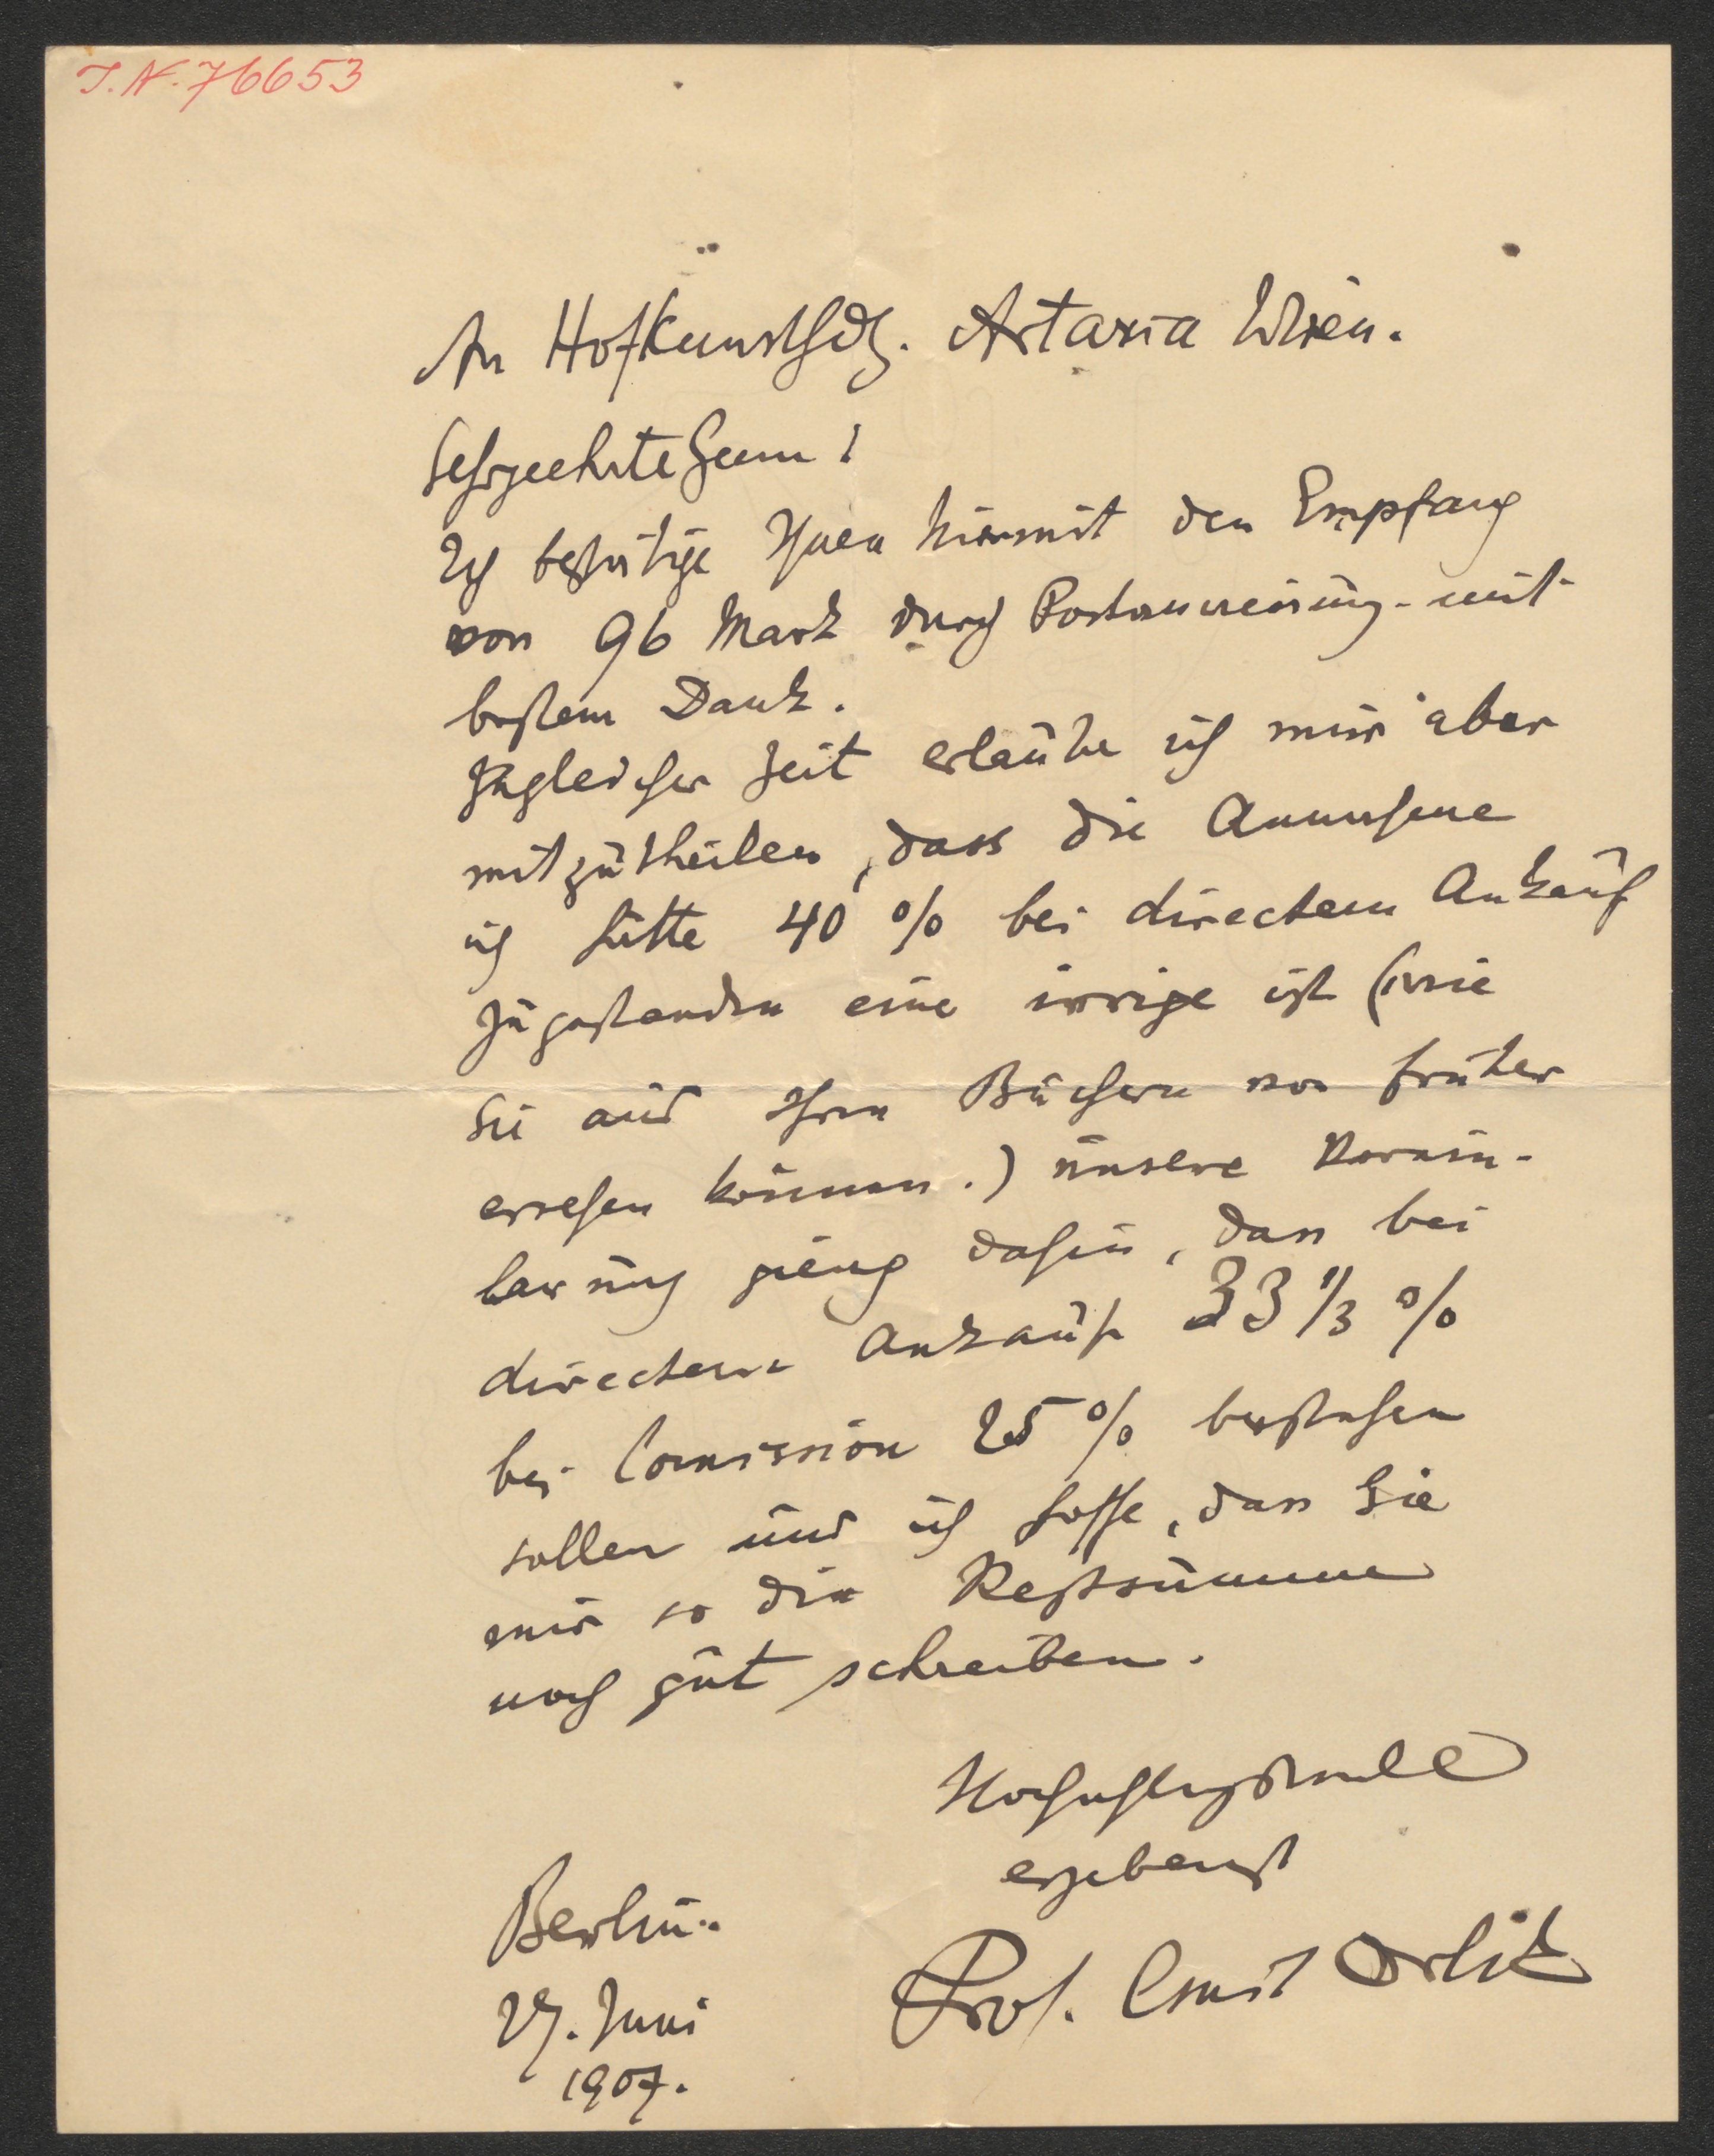 I.N. 76653
An Hofkunsthdlg. Artaria Wien.
Sehrgeehrte Herrn!
Ich bestätige Ihnen hiermit den Empfang
von 96 Mark durch Postanweisung - mit
bestem Dank.
Zugleicher Zeit erlaube ich mir aber
mitzutheilen, dass die Annahme
ich hätte 40 % bei directem Ankauf
zugestanden eine irrige ist (wie
Sie aus Ihren Büchern von früher
ersehen können.) unsere Verein-
barung gieng dahin, dass bei
directem Ankauf 33 1/3 %
bei Comission 25 % bestehen
sollen und ich hoffe, dass Sie
mir so die Restsumme
noch gut schreiben.
Hochachtungsvoll
ergebenst
Prof. Emil Orlik
Berlin.
27. Juni
1907.